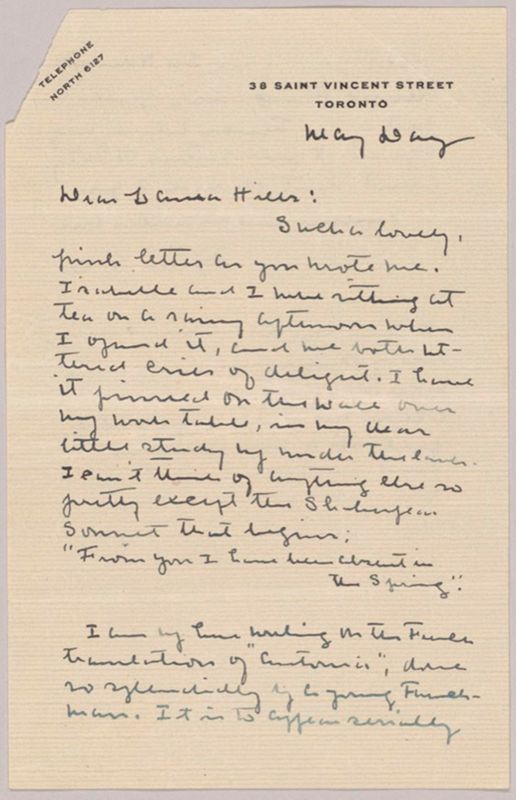 TELEPHONE
NORTH 6127
38 SAINT VINCENT STREET
TORONTO
May Day
Dear Laura Hills:
Such a lovely,
pink letter as you wrote me.
Isabelle and I were sitting at
tea on a rainy afternoon when
I opened it, and we both ut-
tered cries of delight. I have
it pinned on the wall over
my work table, in my dear
little study up under the eaves.
I can't think of anything else so
pretty except the Shakespear
Sonnet that begins;
"From you I have been absent in
the Spring".
I am up here working on the French
translation of "Antonia", done
so splendidly by a young French-
man. It is to appear serially